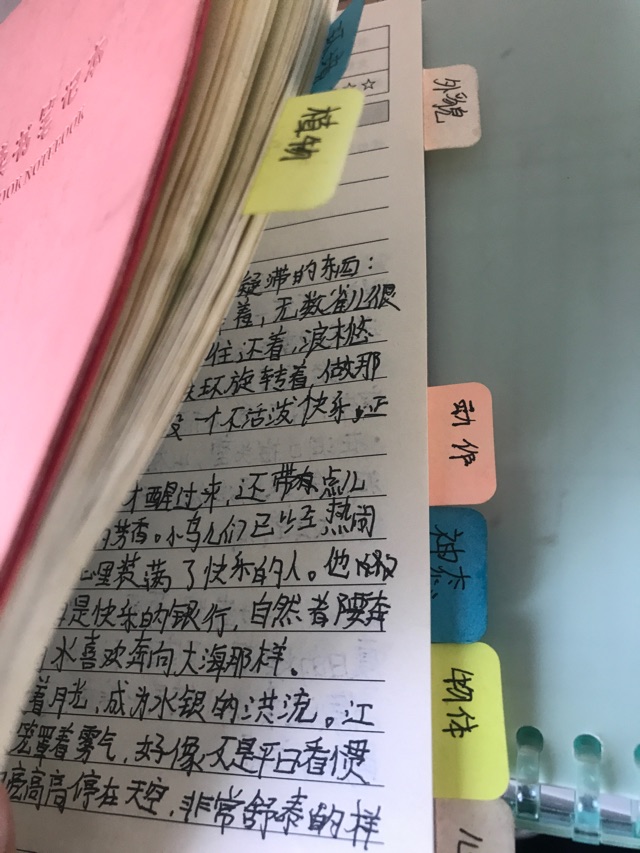 读书笔记本
BOOK NOTEBOOK
植物
外貌
疑滞的东西：
着，无数雀儿很
住还着，波林悠
环旋转着，做那
没一个不活泼快乐，正
才醒过来，还带有点儿
的芳香。小鸟儿们已经热闹
心里装满了快乐的人。他
是快乐的银行，自然者
水喜欢奔向大海那样。
着月光，成为水银的洪流。江
笼罩着雾气，好像又是平日看惯
亮高高停在天空，非常舒泰的样
动作
神态
物体